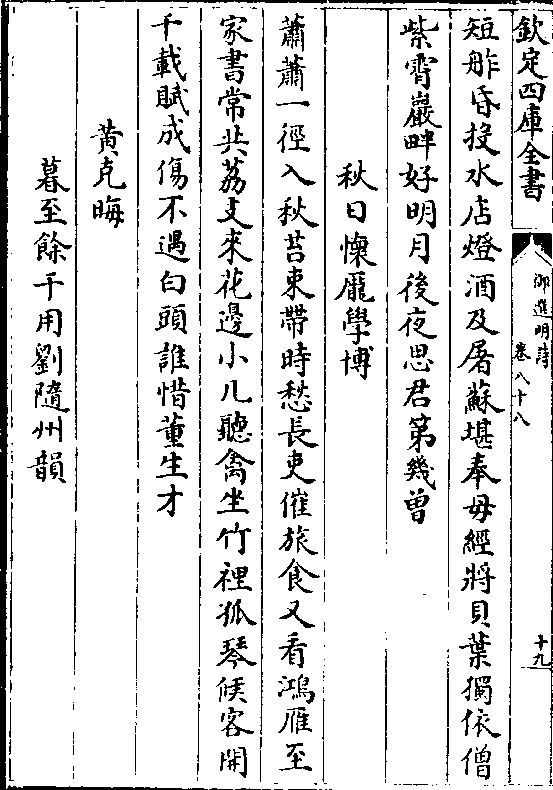 欽定四庫全書
御選明詩
卷八十八
十九
短舴昏投水店燈酒及屠蘇堪奉母經將貝葉獨依僧
紫霄巖畔好明月後夜思君第幾曾
秋日懷龐學博
蕭蕭一徑入秋苔束帶時愁長吏催旅食又看鴻雁至
家書常共荔支來花邊小几聽禽坐竹裡孤琴候客開
千載賦成傷不遇白頭誰惜董生才
黃克晦
暮至餘干用劉隨州韻